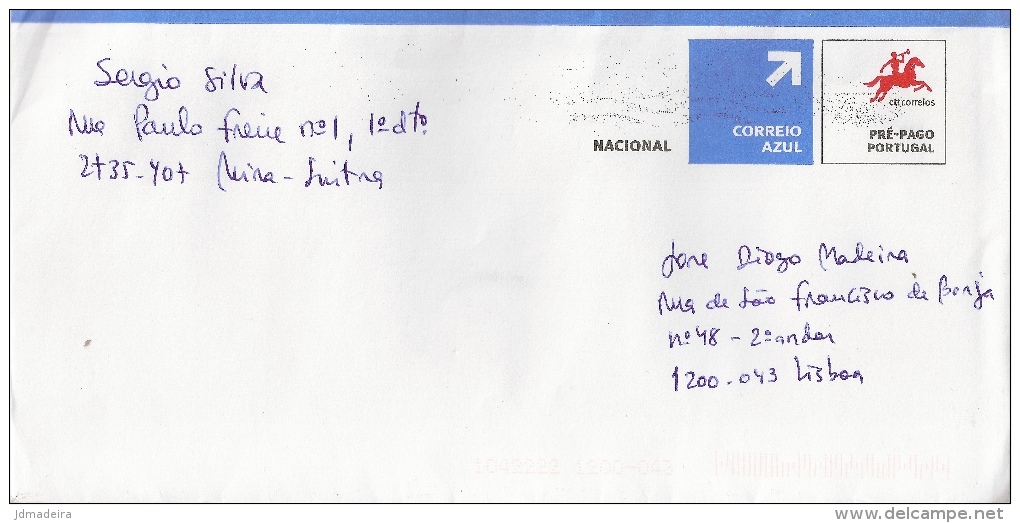 Sergio Silva
Rua Paulo Freire nº1, 1º dtº
2735-407 Mira-Sintra
NACIONAL
CORREIO
AZUL
ctt correios
PRÉ-PAGO
PORTUGAL
Jose Diogo Madeira
Rua de São Francisco de Borja
nº 48 - 2º andar
1200-043 Lisboa
1042222 1200-043
jdmadeira
delcampe.net